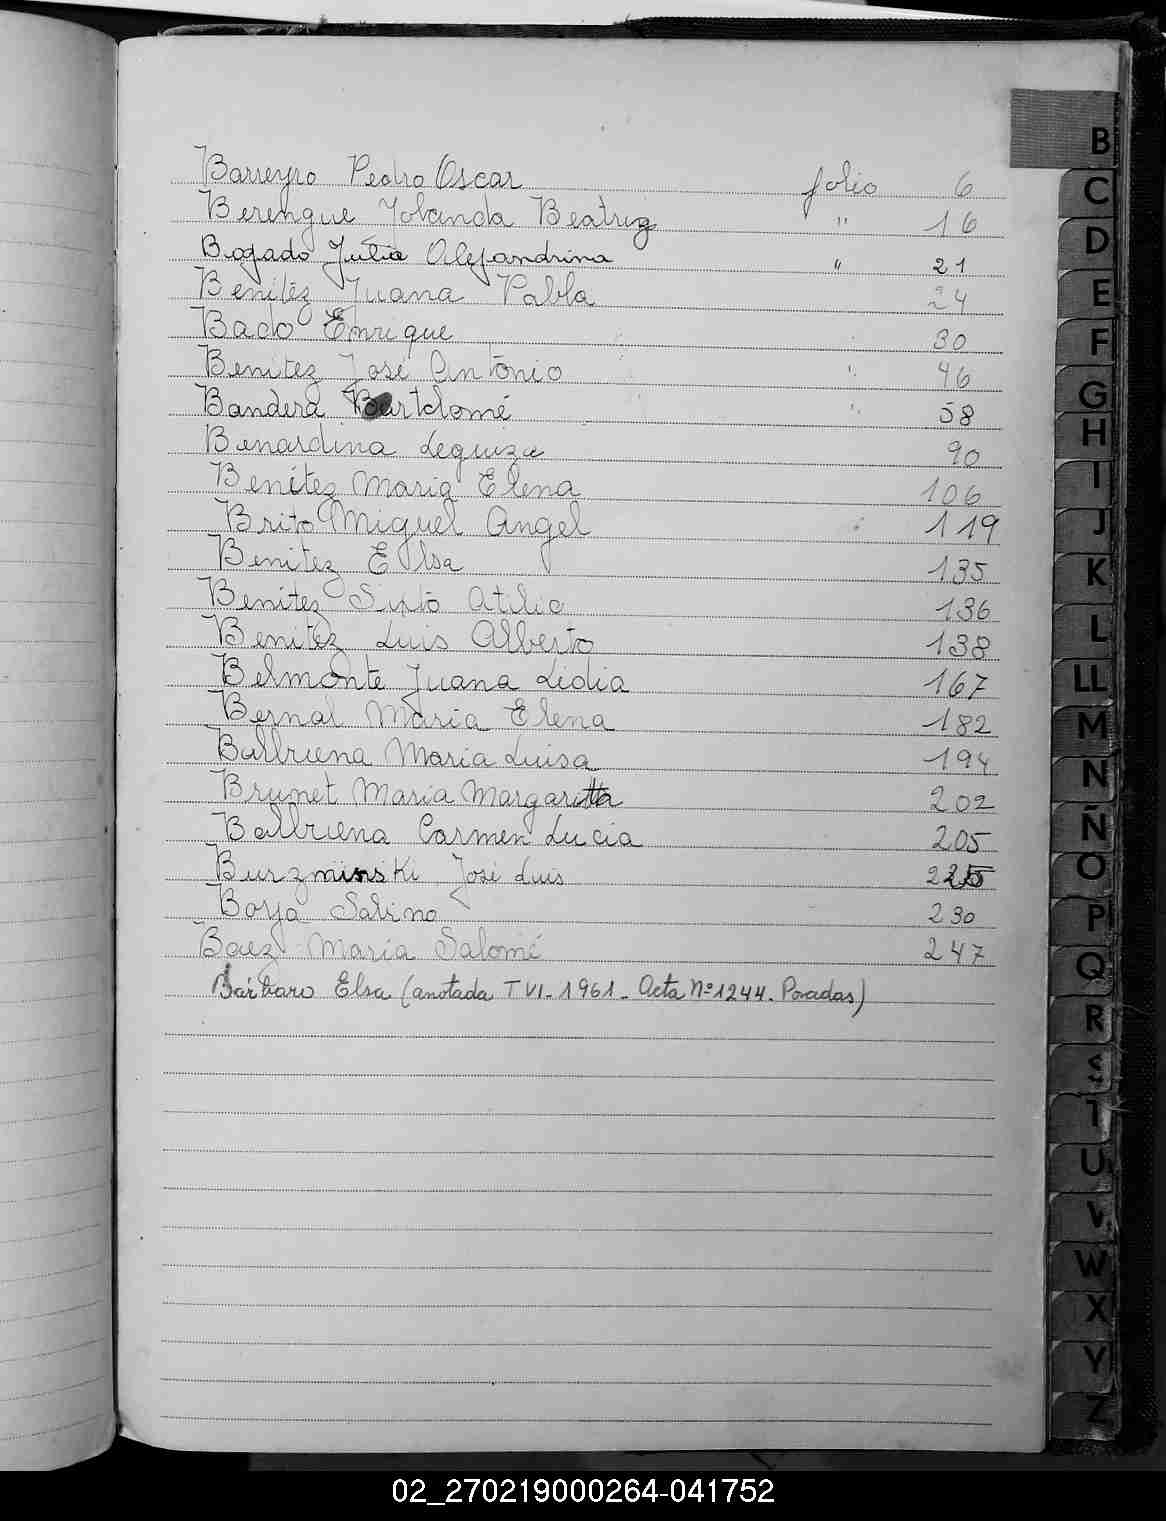 Barreyro Pedro Oscar folio 6
Berengue Yolanda Beatriz " 16
Bogado Julia Alejandrina " 21
Benitez Juana Pabla 24
Bado Enrique 30
Benitez José Antonio " 46
Bandera Bartolomé " 58
Benardina Leguiza 90
Benítez Maria Elena 106
Brito Miguel Angel 119
Benitez Elsa 135
Benitez Sixto Atilio 136
Benitez Luis Alberto 138
Belmonte Juana Lidia 167
Bernal Maria Elena 182
Balbuena Maria Luisa 194
Brunet Maria Margarita 202
Balbuena Carmen Lucia 205
Burzminski José Luis 225
Borja Sabino 230
Baez Maria Salomé 247
Bárbaro Elsa (anotada T VI - 1961 - Acta Nº 1244. Posadas)
B
C
D
E
F
G
H
I
J
K
L
LL
M
N
Ñ
O
P
Q
R
S
T
U
V
W
X
Y
Z
02_270219000264-041752